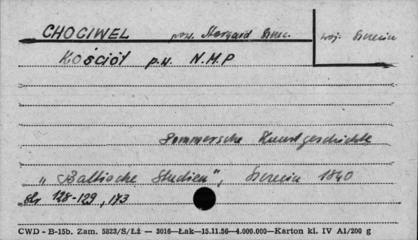 CHOCIWEL pow. Stargard Szcz. woj. Szczecin
Kościół p.w. N.M.P
Pommersche Kunstgeschichte
„Baltische Studien", Szczecin 1840
str 128-129, 183
CWD - B-15b. Zam. 5823/S/Łż — 3016—Łak—15.11.56—4.000.000—Karton kl. IV A1/200 g